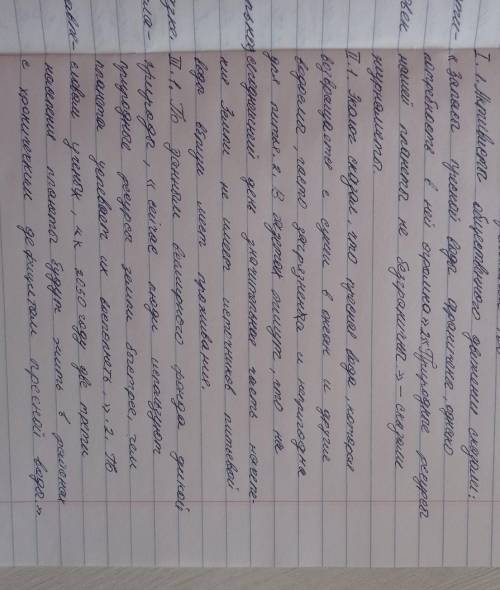 I. 1. Активисты общественного движения сказали:
« Запасы пресной воды огромны, однако
потребность в ней огромна». 2. «Природные ресурсы
нашей планеты не безграничны » – сказали
журналисты.
II. 1. Эколог сказал, что пресная вода, которая
возвращается с суши в океан и другие
водоёмы, часто загрязнена и непригодна
для питья. 2. В газетах пишут, что на
сегодняшний день значительная часть населе-
ния Земли не имеет источников питьевой
воды вблизи мест проживания.
III. 1. По данным всемирного фонда дикой
природы, « сейчас люди используют
природные ресурсы земли быстрее, чем
планета успевает их восполнять, ». 2. По
словам учёных, «к 2050 году две трети
населения планеты будут жить в районах
с хроническим дефицитом пресной воды».